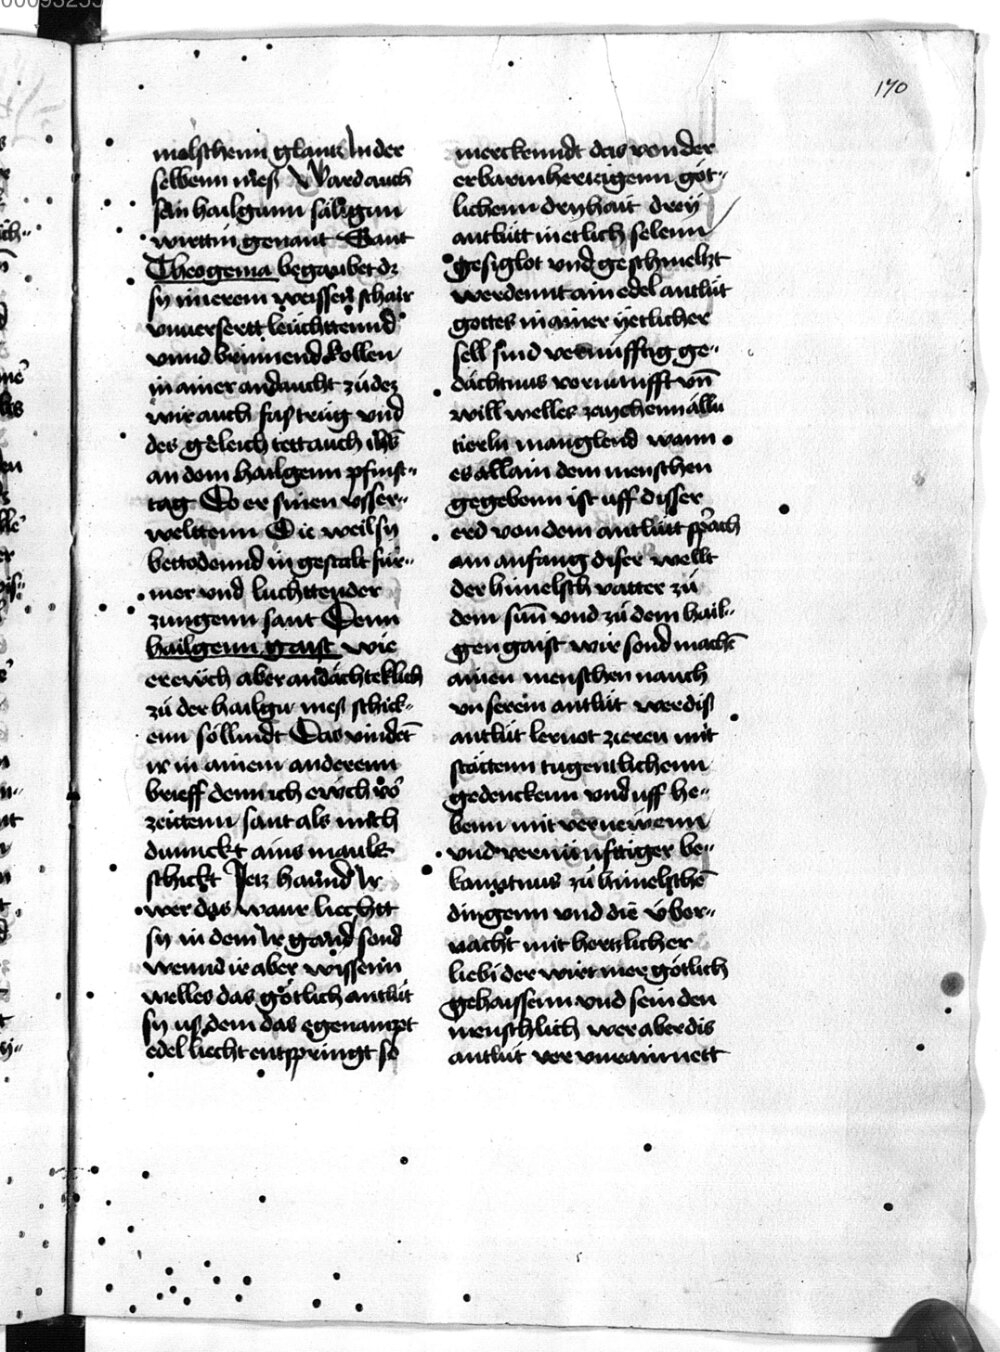 170
melschenn glantz In der
selbenn mess Ward auch
sein hailgunn sälgun
wirttin genant Sant
Theogenia begaubet dz
sy innerem weissen schair
unversertt leüchttennd
vnnd brinnend kollen
in ainer andaucht zů dez
wir auch fast trüg vnd
des geleich tett auch ihs
an dem hailgenn pfinst-
tag Do er sinen vsser-
welttenn Die weil sy
bettodennd in gestalt für-
iner vnd lüchttender
zungenn sant Denn
hailgenn gaist wie
er eẅch aber andächteklich
zů der hailgū mess schick-
enn söllindt Das vindēt
ir in ainem anderenn
brieff denn ich eẅch vor
zeittenn sant als mich
dunnckt ains mauls
schickt Jetz hannd Ir
wer das waur liechtt
sy in dem Ir gand sond
wennd ir aber wissenn
welles das götlich antlüt
sy us dem das egenampt
edel liecht entspringt so
merckenndt das von der
erbarmhertzigenn göt-
lichenn dryhait dreÿ
antlütt ietlich selenn
gesiglot vnd geschmeltzt
werdennt ain edel antlüt
gottes in ainer yetlicher
sell sind vernüfftig ge-
dächtnus vornunfft vn̄
will welles zaychenn allū
tierlu manglend wann
es allain dem menschen
gegebenn ist uff disser
erd von dem antlütt sprach
am anfang diser wellt
der himelsch vatter zů
dem sun̄ vnd zů dem hail-
gen gaist wir sond machē
ainen menschen nauch
vnserem antlüt wer dis
antlüt lernot zieren mit
stättenn tugentlichenn
gedenckenn vnd uff he-
benn mit vernewenn
vnd vernünfttiger be-
kantnus zů himelschē
dingenn vnd die über-
nacht mit herttlicher
liebi der wirt mer götlich
gehaissenn vnd sein den
menschlich wer aber dis
antlüt ver vnrainnett